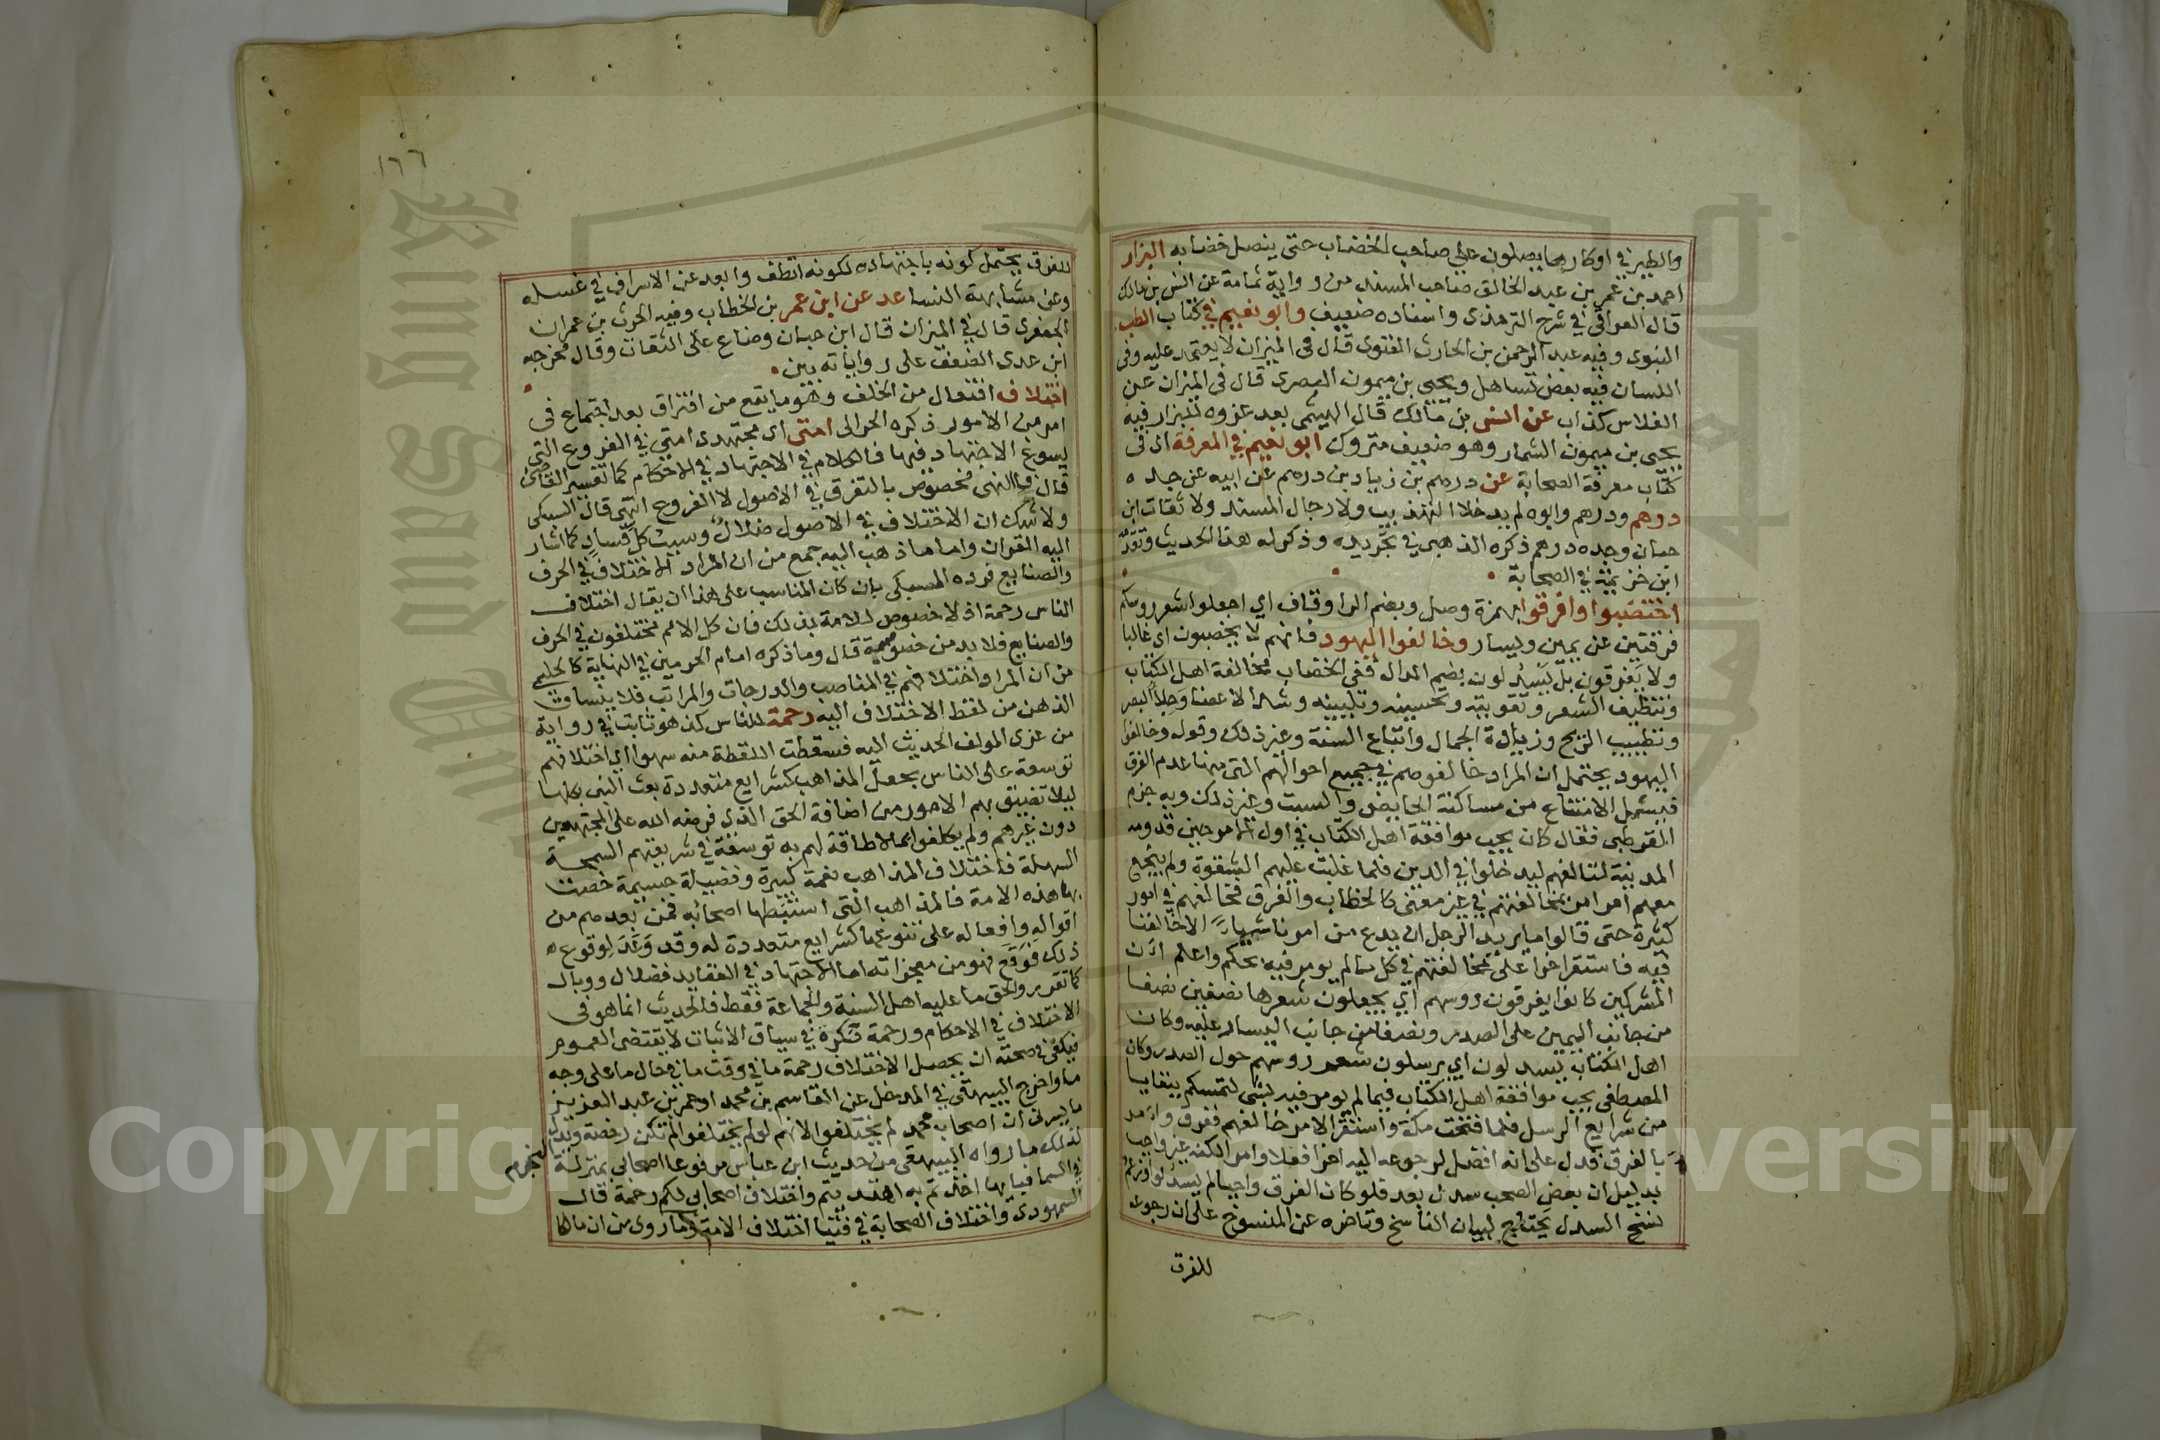 والطير في اوكارها يصلون على صاحب الخضاب حتى ينصل خضابه البزار
احمد بن عمر بن عبد الخالق صاحب المسند من رواية ثمامة عن انس بن مالك
قال العراقي في شرح الترمذي واسناده ضعيف وابو نعيم في كتاب الطب
النبوي وفيه عبد الرحمن بن الحارث الغنوي قال في الميزان لا يعتمد عليه وفي
اللسان فيه بعض تساهل ويحيى بن ميمون البصري قال في الميزان عن
الفلاس كذاب عن انس بن مالك قال الهيثمي بعد عزوه للبزار فيه
يحيى بن ميمون التمار وهو ضعيف متروك ابو نعيم في المعرفة اي في
كتاب معرفة الصحابة عن درهم بن زياد بن درهم عن ابيه عن جده
درهم ودرهم وابوه لم يدخلا التهذيب ولا رجال المسند ولا ثقات ابن
حبان وجده درهم ذكره الذهبي في تجريده وذكر له هذا الحديث وتفرد
ابن خزيمة في الصحابة
اختضبوا وافرقوا بهمزة وصل وبضم الرا وقاف اي اجعلوا شعر روسكم
فرقتين عن يمين ويسار وخالفوا اليهود فانهم لا يخضبون اي غالبا
ولا يفرقون بل يسدلون بضم الدال ففي الخضاب مخالفة اهل الكتاب
وتنظيف الشعر وتقويته وتحسينه وتليينه وشد الاعضا وجلا البصر
وتطييب الريح وزيادة الجمال واتباع السنة وغير ذلك وقوله وخالفوا
اليهود يحتمل ان المراد خالفوهم في جميع احوالهم التي منها عدم الفرق
فيشمل الامتناع من مساكنة الحايض والسبت وغير ذلك وبه جزم
القرطبي فقال كان يحب موافقة اهل الكتاب في اول الامر حين قدومه
المدينة لتالفهم ليدخلوا في الدين فلما غلبت عليهم الشقوة ولم ينجع
معهم امر امر بمخالفتهم في غير معنى كالخطاب والفرق فخالفهم في امور
كثيرة حتى قالوا ما يريد الرجل ان يدع من امرنا شيا الا خالفنا
فيه فاستقر اخرا على مخالفتهم في كل ما لم يومر فيه بحكم واعلم ان
المشركين كانوا يفرقون روسهم اي يجعلون شعرها نصفين نصفا
من جانب اليمين على الصدر ونصفا من جانب اليسار عليه وكان
اهل الكتاب يسدلون اي يرسلون شعر روسهم حول الصدر وكان
المصطفى يحب موافقة اهل الكتاب فيما لم يومر فيه بشي لتمسكهم ببقايا
من شرايع الرسل فلما فتحت مكة واستقر الامر خالفهم ففرق وامر
بالفرق فدل على انه افضل لرجوعه اليه اخرا فعلا وامرا لكنه غير واجب
بدليل ان بعض الصحب سدل بعد فلو كان الفرق واجبا لم يسدلوا وزعم
نسخ السدل يحتاج لبيان الناسخ وتاخره عن المنسوخ على ان رجوعه
للفرق
١٦٦
للفرق يحتمل كونه باجتهاده لكونه انظف وابعد عن الاسراف في غسله
وعن مشابهة النسا عد عن ابن عمر بن الخطاب وفيه الحرث بن عمران
الجعفري قال في الميزان قال ابن حبان وضاع على الثقات وقال مخرجه
ابن عدي الضعف على رواياته بين
اختلاف افتعال من الخلف وهو ما يقع من افتراق بعد اجتماع في
امر من الامور ذكره الحرالي امتي اي مجتهدي امتي في الفروع التي
يسوغ الاجتهاد فيها فالكلام في الاجتهاد في الاحكام كما تفسير القاضي
قال والنهي مخصوص بالتفرق في الاصول لا الفروع انتهى قال السبكي
ولا شك ان الاختلاف في الاصول ضلال وسبب كل فساد كما اشار
اليه القران واما ما ذهب اليه جمع من ان المراد الاختلاف في الحرف
والصنايع فرده السبكي بان كان المناسب على هذا ان يقال اختلاف
الناس رحمة اذ لا خصوص للامة بذلك فان كل الامم مختلفون في الحرف
والصنايع فلا بد من خصوصية قال وما ذكره امام الحرمين في النهاية كالحليمي
من ان المراد اختلافهم في المناصب والدرجات والمراتب فلا ينساق
الذهن من لفظ الاختلاف اليه رحمة للناس كذا هو ثابت في رواية
من عزى المولف الحديث اليه فسقطت اللفظة منه سهوا اي اختلافهم
توسعة على الناس بجعل المذاهب كشرايع متعددة بعث النبي بكلها
ليلا تضيق بهم الامور من اضافة الحق الذي فرضه الله على المجتهدين
دون غيرهم ولم يكلفوا ما لا طاقة لهم به توسعة في شريعتهم السمحة
السهلة فاختلاف المذاهب نعمة كبيرة وفضيلة جسيمة خصت
بها هذه الامة فالمذاهب التي استنبطها اصحابه فمن بعدهم من
اقواله وافعاله على تنوعها كشرايع متعددة له وقد وعد بوقوع
ذلك فوقع فهو من معجزاته اما الاجتهاد في العقايد فضلال ووبال
كما تقرر والحق ما عليه اهل السنة والجماعة فقط فالحديث انما هو في
الاختلاف في الاحكام ورحمة نكرة في سياق الاثبات لا يقتضي العموم
فيكفي في صحته ان يحصل الاختلاف رحمة ما في وقت ما في حال ما على وجه
ما واخرج البيهقي في المدخل عن القاسم بن محمد او عمر بن عبد العزيز
ما يسرني ان اصحاب محمد لم يختلفوا لانهم لو لم يختلفوا لم تكن رخصة ويدل
لذلك ما رواه البيهقي من حديث ابن عباس مرفوعا اصحابي بمنزلة النجوم
في السما فبايها اخذتم به اهتديتم واختلاف اصحابي لكم رحمة قال
السمهودي واختلاف الصحابة في فتيا اختلاف الامة وما روي من ان مالكا
King Saud University
Copyright © King Saud University